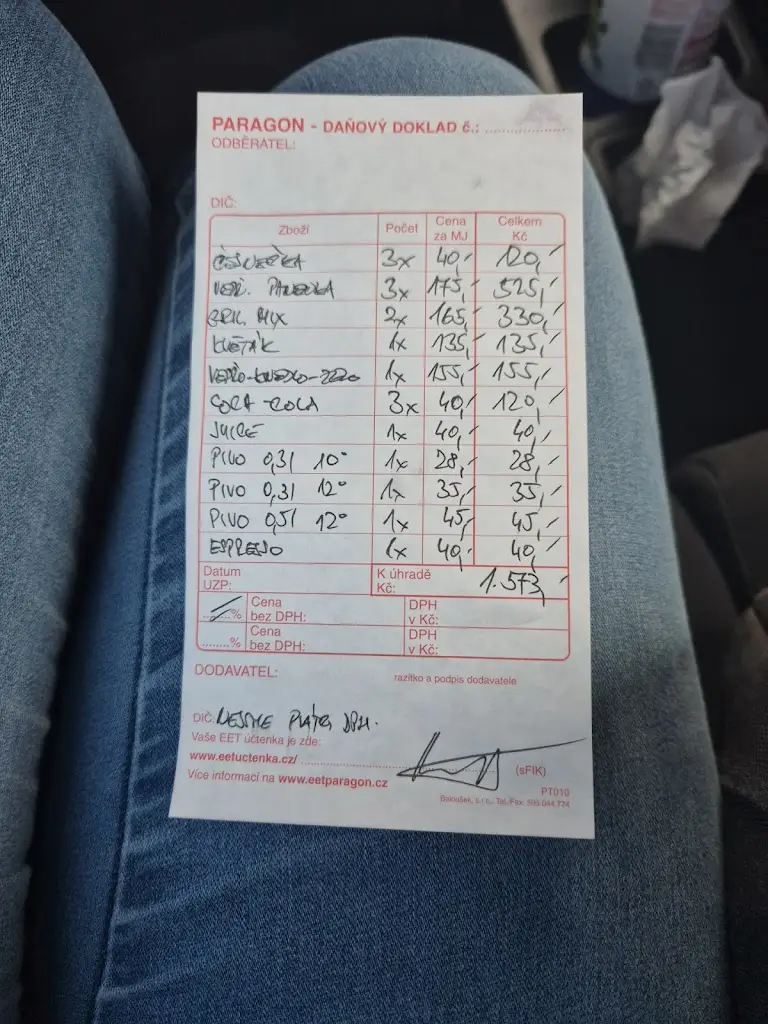 PARAGON - DAŇOVÝ DOKLAD č.: ....................
ODBĚRATEL:
DIČ:
Zboží Počet Cena za MJ Celkem Kč
ČESNEČKA 3x 40,- 120,-
VEPŘ. PANENKA 3x 175,- 525,-
GRIL MIX 2x 165,- 330,-
KVĚTÁK 1x 135,- 135,-
VEPŘO-KNEDLO-ZELO 1x 155,- 155,-
COCA-COLA 3x 40,- 120,-
JUICE 1x 40,- 40,-
PIVO 0,3l 10° 1x 28,- 28,-
PIVO 0,3l 12° 1x 35,- 35,-
PIVO 0,5l 12° 1x 45,- 45,-
ESPRESO 1x 40,- 40,-
Datum UZP: K úhradě Kč: 1.573,-
........% Cena bez DPH: DPH v Kč:
........% Cena bez DPH: DPH v Kč:
DODAVATEL:
razítko a podpis dodavatele
DIČ: NEJSME PLÁTCI DPH.
Vaše EET účtenka je zde:
www.eetuctenka.cz/ ........................ (sFIK)
Více informací na www.eetparagon.cz
PT010
Baloušek, s.r.o., Tel./Fax: